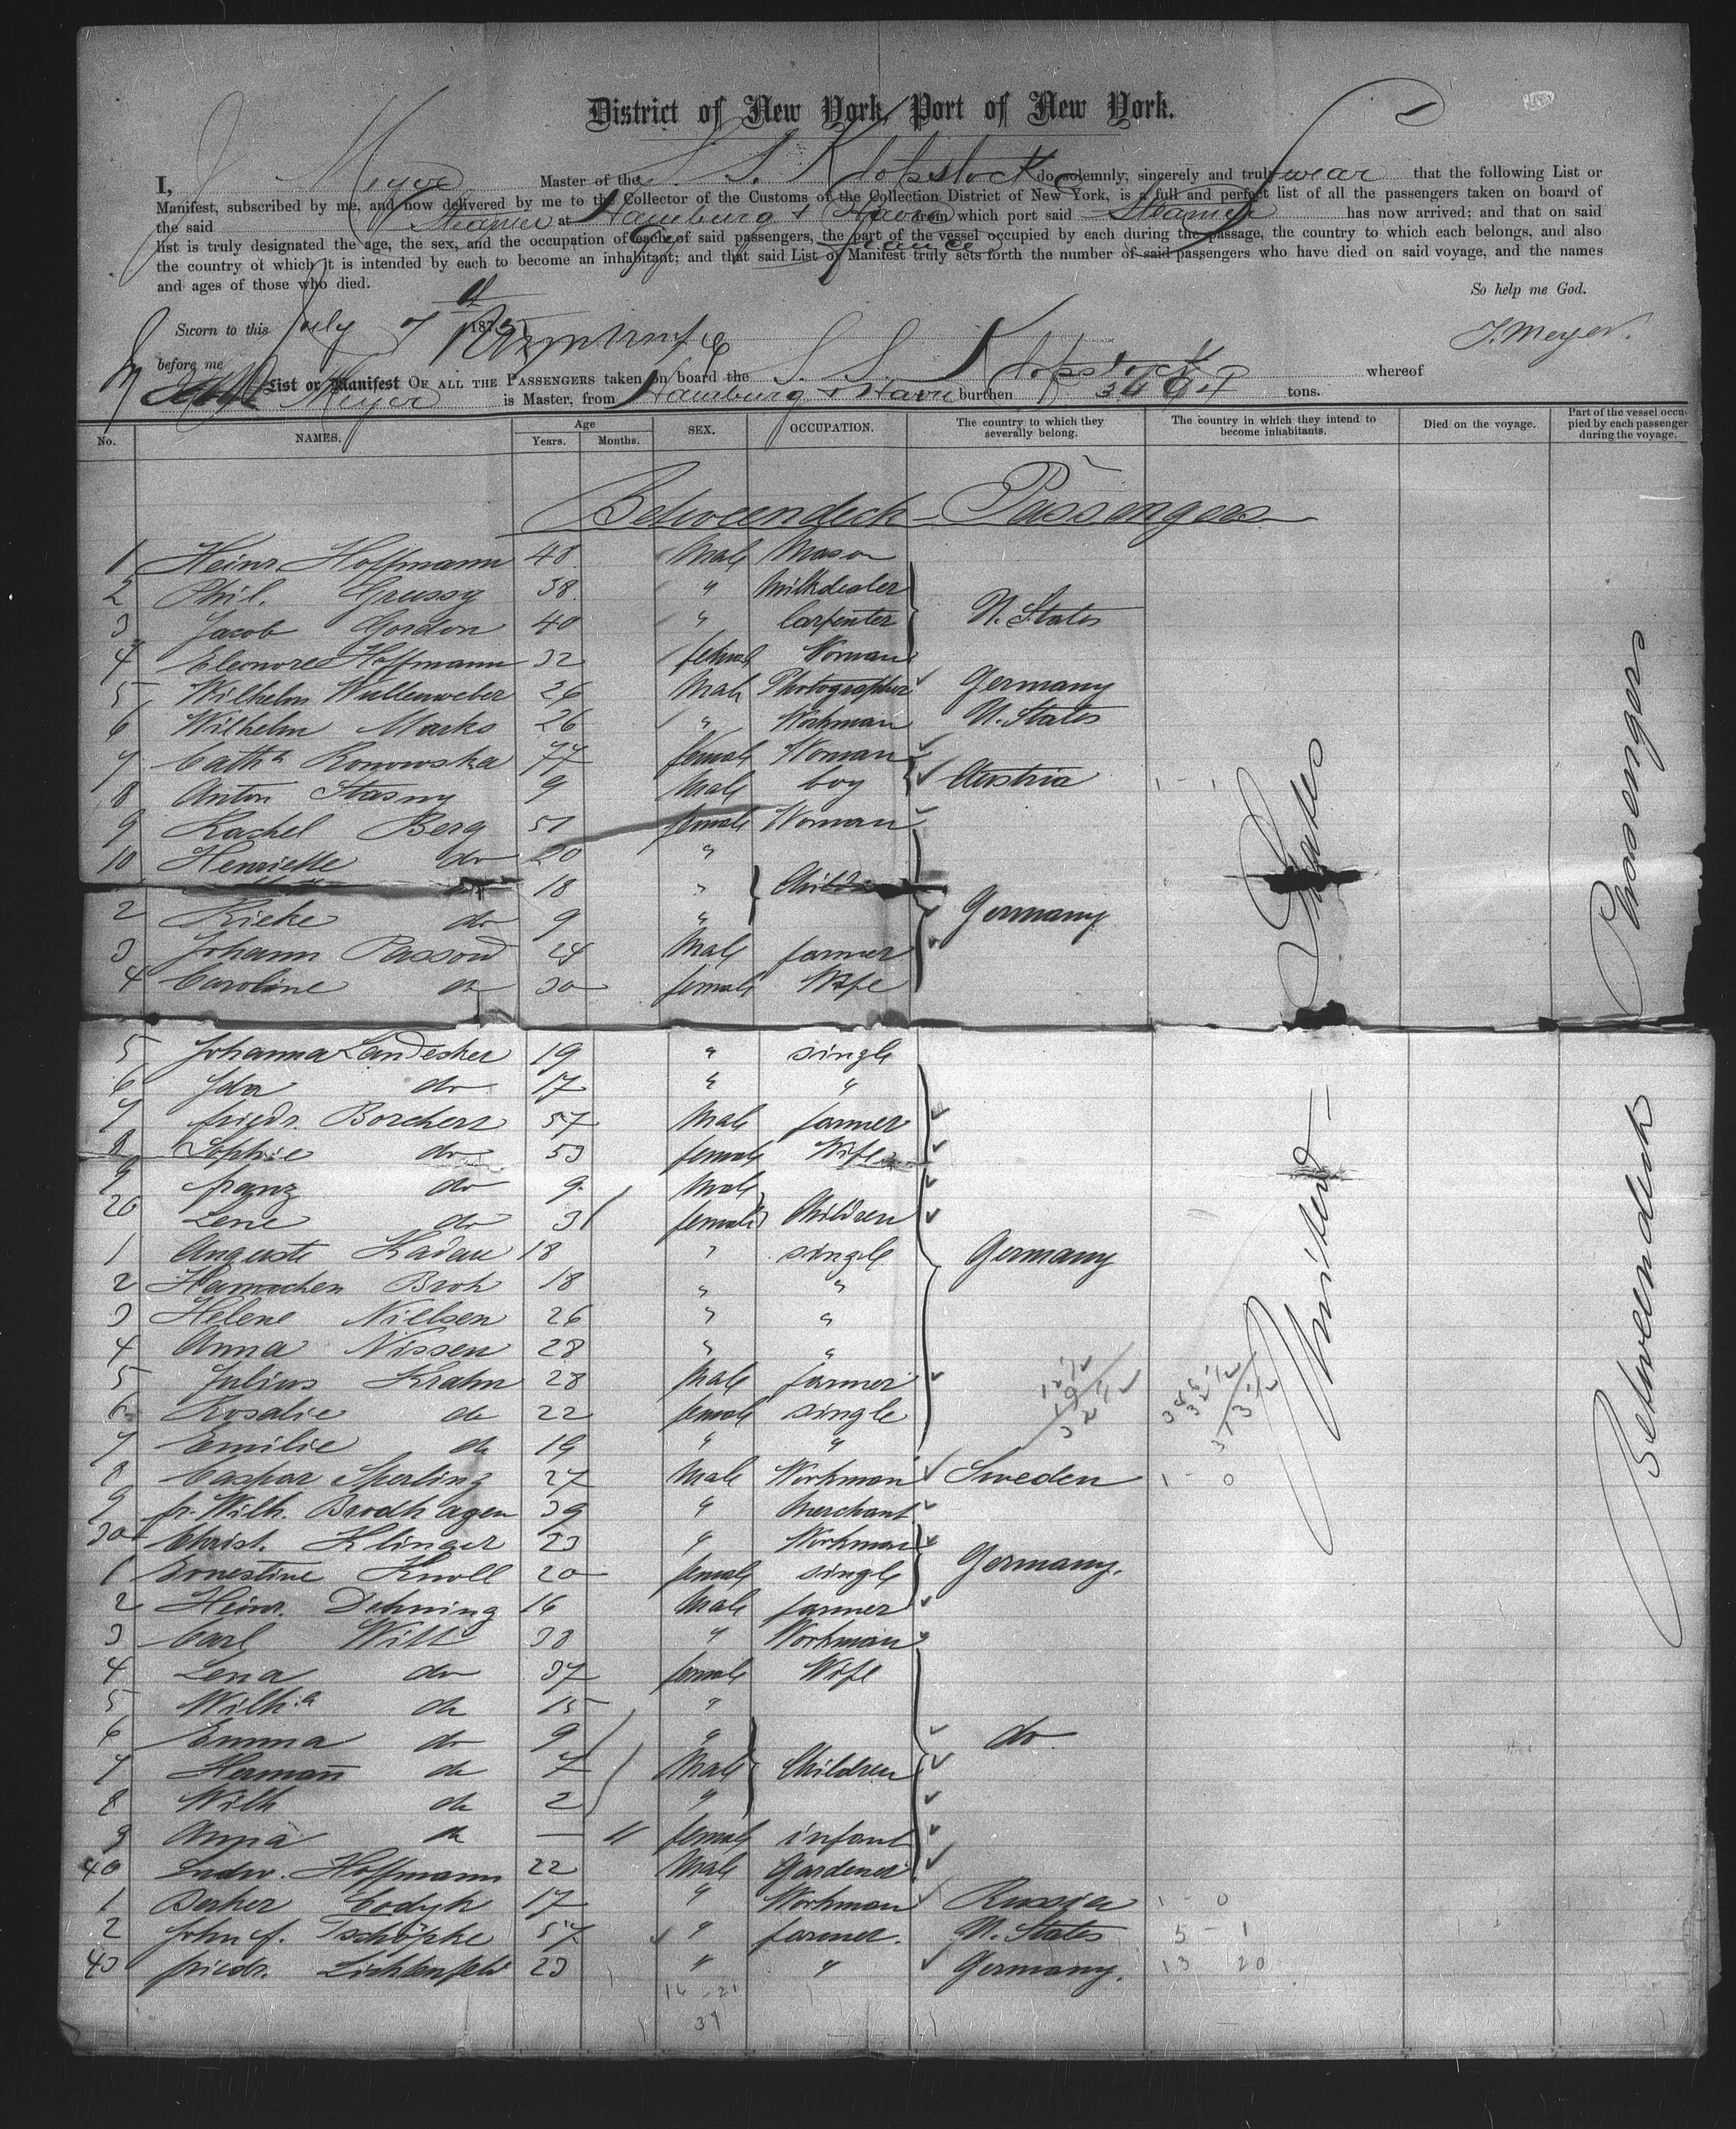 District of New York, Port of New York.
I, J. Meyer Master of the S. S. Klopstock do solemnly, sincerely and truly swear that the following List or
Manifest, subscribed by me, and now delivered by me to the Collector of the Customs of the Collection District of New York, is a full and perfect list of all the passengers taken on board of
the said Steamer at Hamburg & Havre from which port said Steamer has now arrived; and that on said
list is truly designated the age, the sex, and the occupation of each of said passengers, the part of the vessel occupied by each during the passage, the country to which each belongs, and also
the country of which it is intended by each to become an inhabitant; and that said List or Manifest truly sets forth the number of said passengers who have died on said voyage, and the names
and ages of those who died.
So help me God.
Sworn to this July 7 187
J. Meyer.
before me
List or Manifest OF ALL THE PASSENGERS taken on board the S. S. Klopstock whereof
Meyer is Master, from Hamburg & Havre burthen tons.
No. NAMES. Age Years. Months. SEX. OCCUPATION. The country to which they severally belong. The country in which they intend to become inhabitants. Died on the voyage. Part of the vessel occupied by each passenger during the voyage.
Betweendeck-Passengers
1 Heinr. Hoffmann 48 Male Mason
2 Phil. Greussy 38 " Milkdealer
3 Jacob Gordon 40 " Carpenter U. States
4 Eleonore Hoffmann 32 female Woman
5 Wilhelm Wullenweber 26 Male Photographer Germany
6 Wilhelm Marks 26 " Workman U. States
7 Cath.a Konowska 77 female Woman
8 Anton Stasny 9 Male boy Austria
9 Rachel Berg 51 female Woman
10 Henriette do 20 "
18 "
2 Rieke do 9 " Germany
3 Johann Passow 24 Male farmer
4 Caroline do 30 female Wife
5 Johanna Landecker 19 " single
6 Ida do 17 " "
7 friedr. Borchert 57 Male farmer
8 Sophie do 53 female Wife
9 franz do 9 Male
20 Lene do 3 female Children
1 Auguste Kadau 18 " single Germany
2 Hannchen Broh 18 " "
3 Helene Nielsen 26 " "
4 Anna Nissen 28 " "
5 Julius Krahn 28 Male farmer
6 Rosalie do 22 female single
7 Emilie do 19 " "
8 Caspar Sperling 27 Male Workman Sweden 1 - 0
9 fr. Wilh. Brodhagen 39 " Merchant
30 Christ. Klinger 23 " Workman
1 Ernestine Knoll 20 female single Germany.
2 Heinr. Dehning 16 Male farmer
3 Carl Witt 38 " Workman
4 Lena do 37 female Wife
5 Wilh.a do 15 "
6 Emma do 9 " do
7 Hermann do 7 Male Children
8 Wilh do 2 "
9 Anna do — 11 female infant
40 Ludw. Hoffmann 22 Male Gardener
1 17 " Workman Russia 1 - 0
2 John f. Tschöpke 57 " farmer. U. States 5 - 1
43 friedr. Lichtenfeld 23 " " Germany. 13 20
16 - 21
United States
Betweendeck Passengers